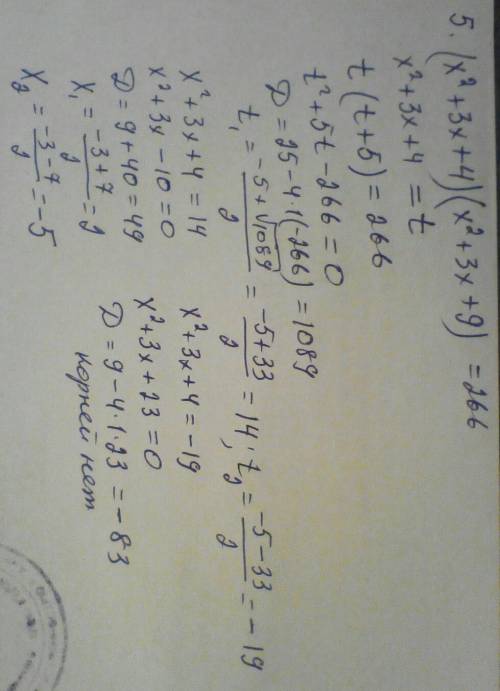 5. (x²+3x+4)(x²+3x+9) = 266
x²+3x+4 = t
t(t+5) = 266
t²+5t-266=0
D=25-4·1(-266)=1089
t₁ = (-5+√1089)/2 = (-5+33)/2 = 14; t₂ = (-5-33)/2 = -19
x²+3x+4=14
x²+3x-10=0
D=9+40=49
x₁ = (-3+7)/2 = 2
x₂ = (-3-7)/2 = -5
x²+3x+4=-19
x²+3x+23=0
D=9-4·1·23=-83
корней нет